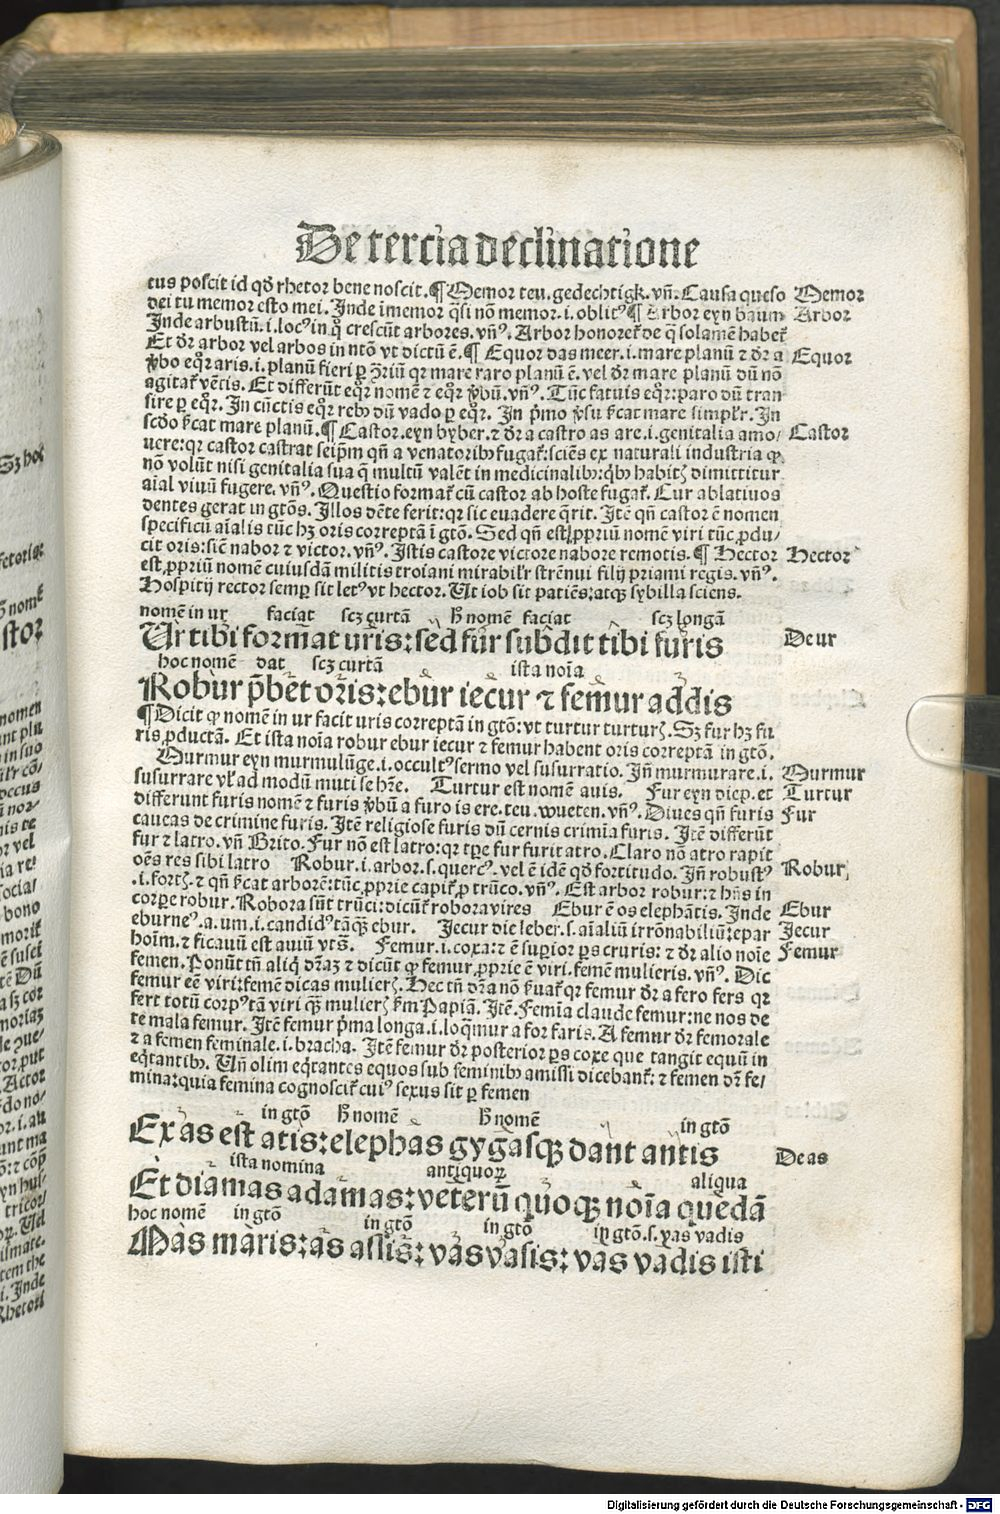 De tercia declinatione
tus poscit id qd̕ rhetor bene noscit. ¶ Memor teu. gedechtigk. vñ. Causa queso Memor
dei tu memor esto mei. Inde īmemor q̄si nō memor. i. oblitꝰ ¶ Arbor eyn baum Arbor
Inde arbustū. i. locꝰ in q̄ crescūt arbores. vñꝰ. Arbor honoret̕ de q̄ solamē habet̕
Et dr̄ arbor vel arbos in ntō vt dictū ē. ¶ Equor das meer. i. mare planū ⁊ dr̄ a Equor
v̕bo eqͦr aris. i. planū fieri ꝑ ↄ̄riū qr mare raro planū ē. vel dr̄ mare planū dū nō
agitat̕ vētis. Et differūt eqͦr nomē ⁊ eqͦr v̕bū. vñꝰ. Tūc fatuis eqͦr: paro dū tran
sire ꝑ eqͦr. In cūctis eqͦr rebꝰ dū vado ꝑ eqͦr. In p̄mo v̕su ẜcat mare simpl̕r. In
scd̕o ẜcat mare planū. ¶ Castor. eyn byber. ⁊ dr̄ a castro as are. i. genitalia amo/ Castor
uere: qr castor castrat seip̄m qñ a venatoribꝫ fugat̕: sciēs ex naturali industria ꝙ
nō volūt nisi genitalia sua q̄ multū valēt in medicinalibꝫ: q̄bꝫ habitꝭ dimittitur
aīal viuū fugere. vñꝰ. Questio format̕ cū castor ab hoste fugat̕. Cur ablatiuos
dentes gerat in gtōs. Illos dēte ferit: qr sic euadere q̄rit. Itē qñ castor ē nomen
specificū aīalis tūc hꝫ oris correptā ī gtō. Sed qñ est ꝓpriū nomē viri tūc ꝓdu/
cit oris: sicut nabor ⁊ victor. vñꝰ. Istis castore victore nabore remotis. ¶ Hector Hector
est ꝓpriū nomē cuiusdā militis troiani mirabil̕r strēnui filij priami regis. vñꝰ.
Hospitij rector semp̱ sit letꝰ vt hector. Ut iob sit patiēs: atqꝫ sybilla sciens.
nomē in ur faciat scꝫ curtā h̄ nomē faciat scꝫ longā
Ur tibi format uris: sed fur subdit tibi furis De ur
hoc nomē dat scꝫ curtā ista noīa
Robur p̄bet oris: ebur iecur ⁊ femur addis
¶ Dicit ꝙ nomē in ur facit uris correptā in gtō: vt turtur turturꝭ. Sꝫ fur hꝫ fu
ris ꝓductā. Et ista noīa robur ebur iecur ⁊ femur habent oris correptā in gtō.
Murmur eyn murmulūge. i. occultꝰ sermo vel susurratio. Iñ murmurare. i. Murmur
susurrare vl̕ ad modū muti se hr̄e. Turtur est nomē auis. Fur eyn diep. et Turtur
differunt furis nomē ⁊ furis v̕bū a furo is ere. teu. wueten. vñꝰ. Diues qñ furis Fur
caueas de crimine furis. Itē religiose furis dū cernis crimīa furis. Itē differūt
fur ⁊ latro. vñ Brito. Fur nō est latro: qr tꝑe fur furit atro. Claro nō atro rapit
oēs res sibi latro Robur. i. arbor. s. quercꝰ. vel ē idē qd̕ fortitudo. Iñ robustꝰ Robur
.i. fortꝭ. ⁊ qñ ẜcat arborē: tūc ꝓprie capit̕ ꝓ trūco. vñꝰ. Est arbor robur: ⁊ hn̄s in
corꝑe robur. Robora sūt trūci: dicūt̕ robora vires Ebur ē os elephātis. Inde Ebur
eburneꝰ. a. um. i. candidꝰ tāqꝫ ebur. Iecur die leber. s. aīaliū irrōnabiliū: epar Iecur
hoīm. ⁊ ficauū est auiū vtꝭ. Femur. i. coxa: ⁊ ē suꝑior ꝑs cruris: ⁊ dr̄ alio noīe Femur
femen. Ponūt tñ aliq̄ dr̄az ⁊ dicūt ꝙ femur ꝓprie ē viri. femē mulieris. vñꝰ. Dic
femur eē viri: femē dicas mulierꝭ. Hec tñ dr̄a nō ẜuat̕ qr femur dr̄ a fero fers qr
fert totū corpꝰ tā viri qͣꝫ mulierꝭ ẜm Papiā. Itē. Femīa claude femur: ne nos de
te mala femur. Itē femur p̄ma longa. i. loq̄mur a for faris. A femur dr̄ femorale
⁊ a femen feminale. i. bracha. Itē femur dr̄ posterior ꝑs coxe que tangit equū in
eq̄tantibꝫ. Uñ olim eq̄tantes equos sub feminibꝫ amissi dicebant̕: ⁊ femen dr̄ fe/
mina: quia femina cognoscit̕ cuiꝰ sexus sit ꝑ femen
in gtō h̄ nomē h̄ nomē in gtō
Ex as est atis: elephas gygasqꝫ dant antis De as
ista nomina antiquoꝝ aliqua
Et diamas adamas: veterū quoqꝫ noīa quedā
hoc nomē in gtō in gtō in gtō in gtō. s. vas vadis
Mas maris: as assis: vas vasis: vas vadis isti
Sꝫ hoc
stor
Actor
Inde
Rhetori
Digitalisierung gefördert durch die Deutsche Forschungsgemeinschaft - DFG